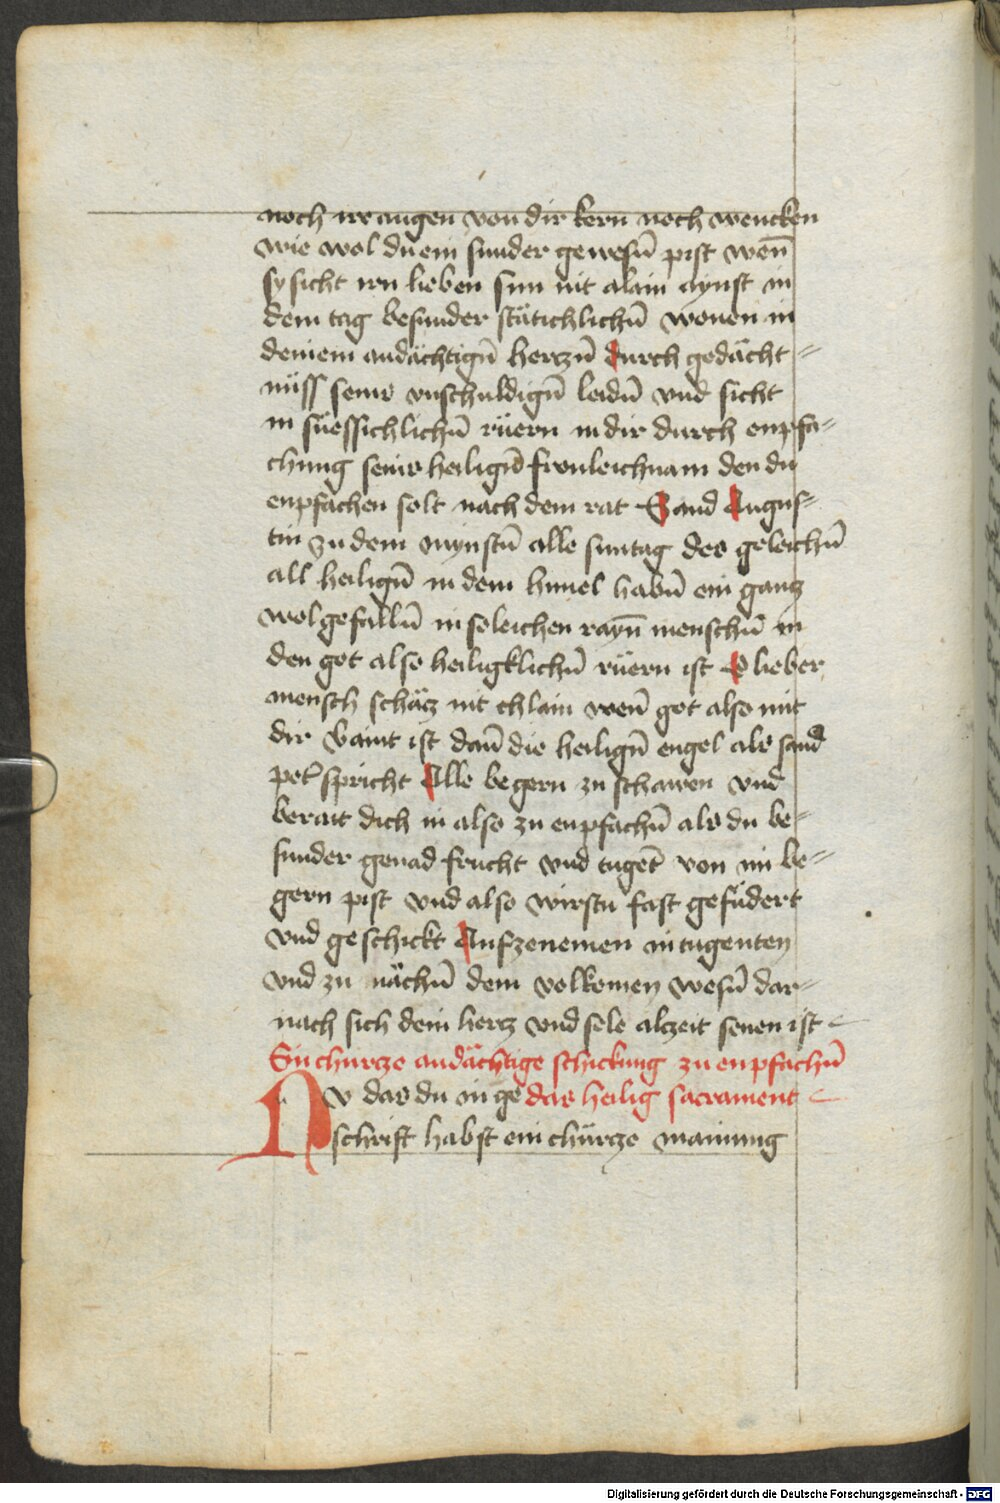 noch ire augen von dir kern noch wencken
wie wol du ein sunder gewesn̄ pist wen̄
sy sicht irn lieben sun nit alain aynst in
dem tag besunder stätichlichn̄ wonen in
deinem andächtign̄ hertzn̄ durch gedächt=
nüss seins vnschuldign̄ leidn̄ vnd sicht
in süessichlichn̄ rüern in dir durch enpfa=
chung seins heilign̄ fronleichnam den du
enpfachen solt nach dem rat Sand Augus=
tin zu dem mynstn̄ alle suntag des geleichn̄
all heilign̄ in dem himel habn̄ ein gantz
wolgefalln̄ in soleichen rayn̄ menschn̄ in
den got also heiligklichn̄ rüern ist O lieber
mensch schätz nit chlain wen̄ got also mit
dir vaint ist dan̄ die heilign̄ engel als sand
pet̄ spricht Alle begern zu schawen vnd
berait dich in also zu enpfachn̄ als du be=
sunder genad frucht vnd tuget̄ von im be=
gern pist vnd also wirstu fast gefüdert
vnd geschickt Aufzenemen in tugenten
vnd zu nächn̄ dem volkomen wesn̄ dar=
nach sich dein hertz vnd sele alzeit senen ist
Ein churtze andächtige schickung zu enpfachn̄
Nv das du in ge das heilig sacrament
schrift habst ein chürtze mainung
Digitalisierung gefördert durch die Deutsche Forschungsgemeinschaft - DFG